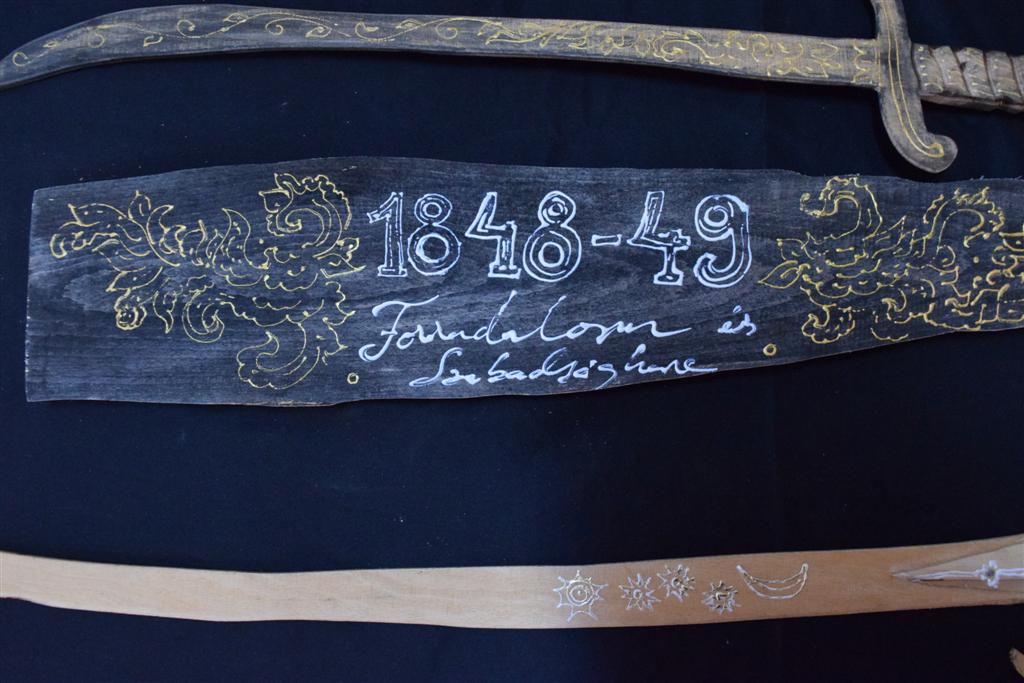 1848-49
Forradalom és
Szabadságharc